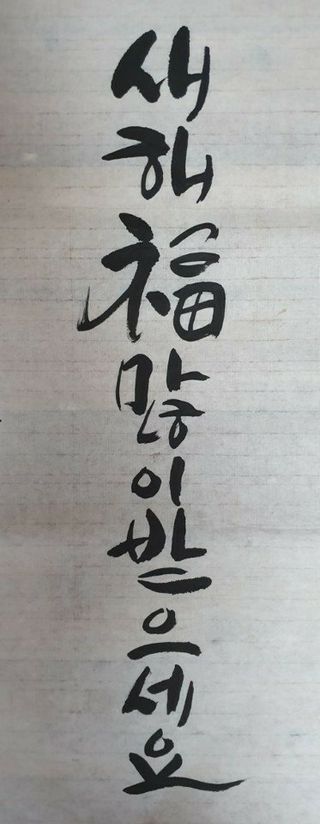 새해福많이받으세요